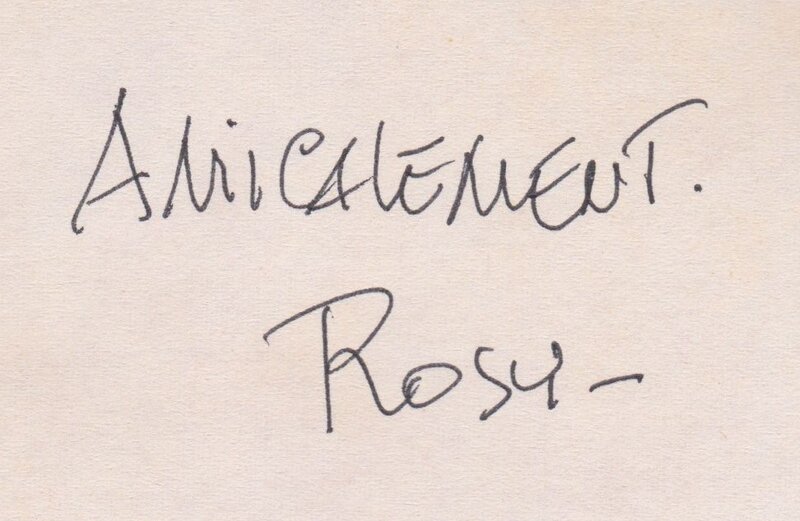 AMICALEMENT.
ROSY –